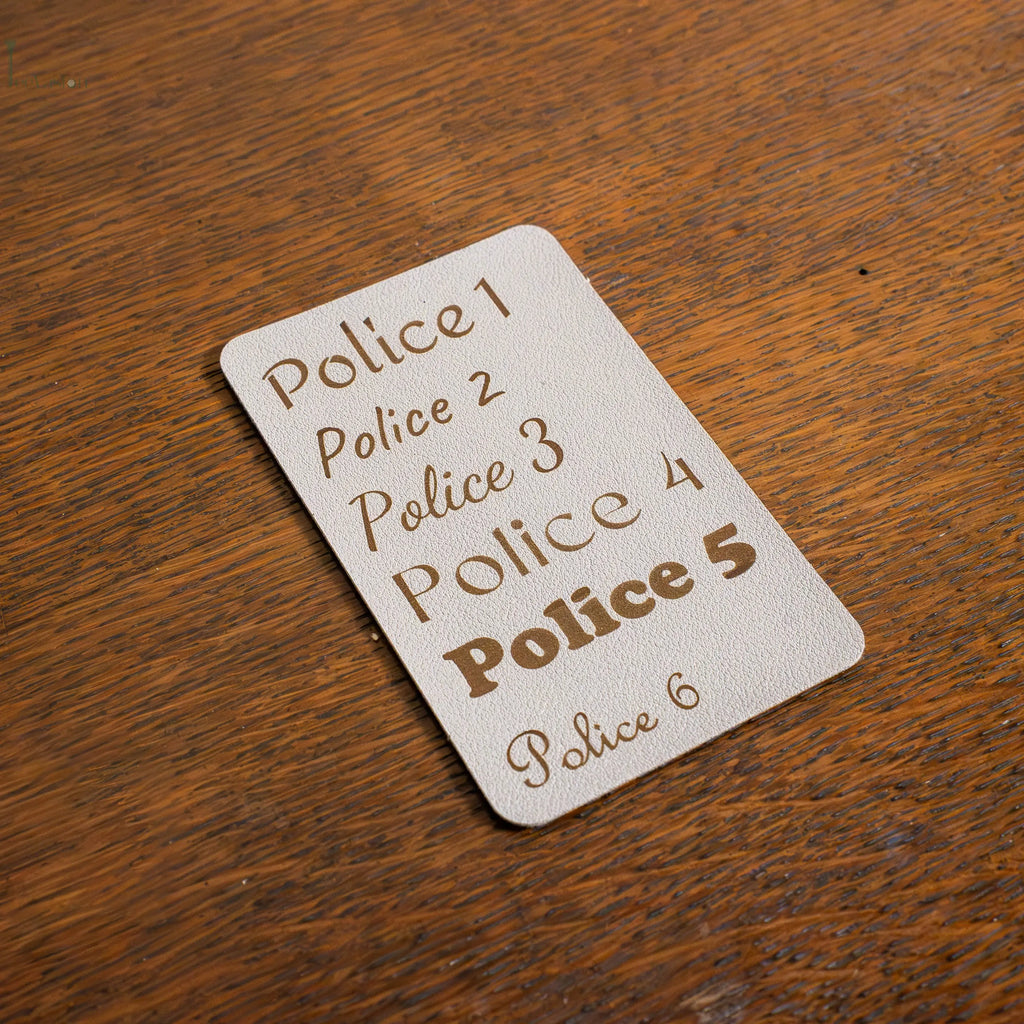 Police 1
Police 2
Police 3
Police 4
Police 5
Police 6